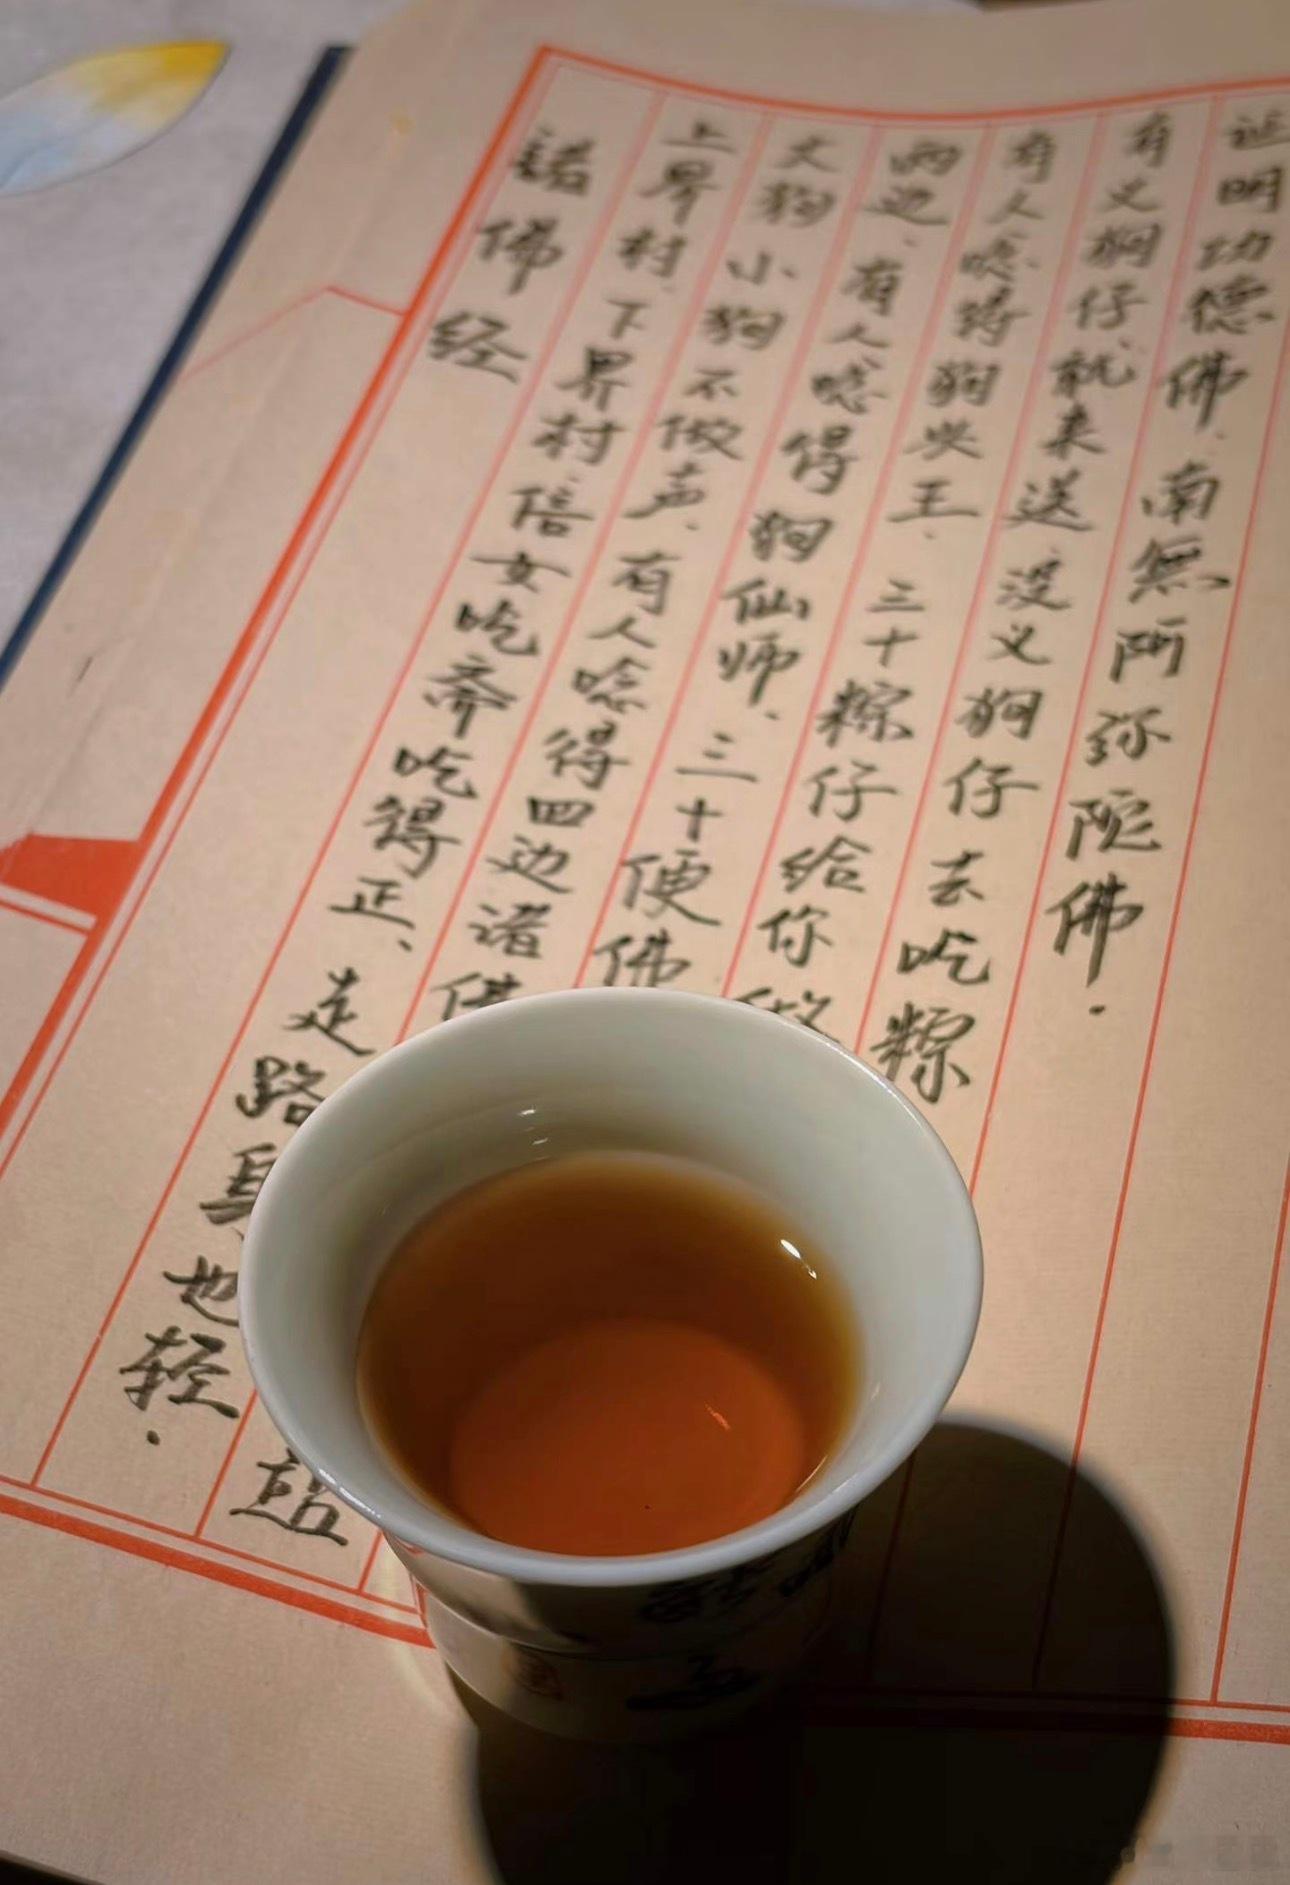 诸佛经
上界村、下界村、倍女吃斋吃得正、走路身也轻.
大狗小狗不做声、有人唸得四边诸佛
两边、有人唸得狗仙师、三十便佛
有人唸得狗央王、三十粽仔给你
有义狗仔就来送 没义狗仔去吃粽
证明功德佛.南無阿弥陀佛.